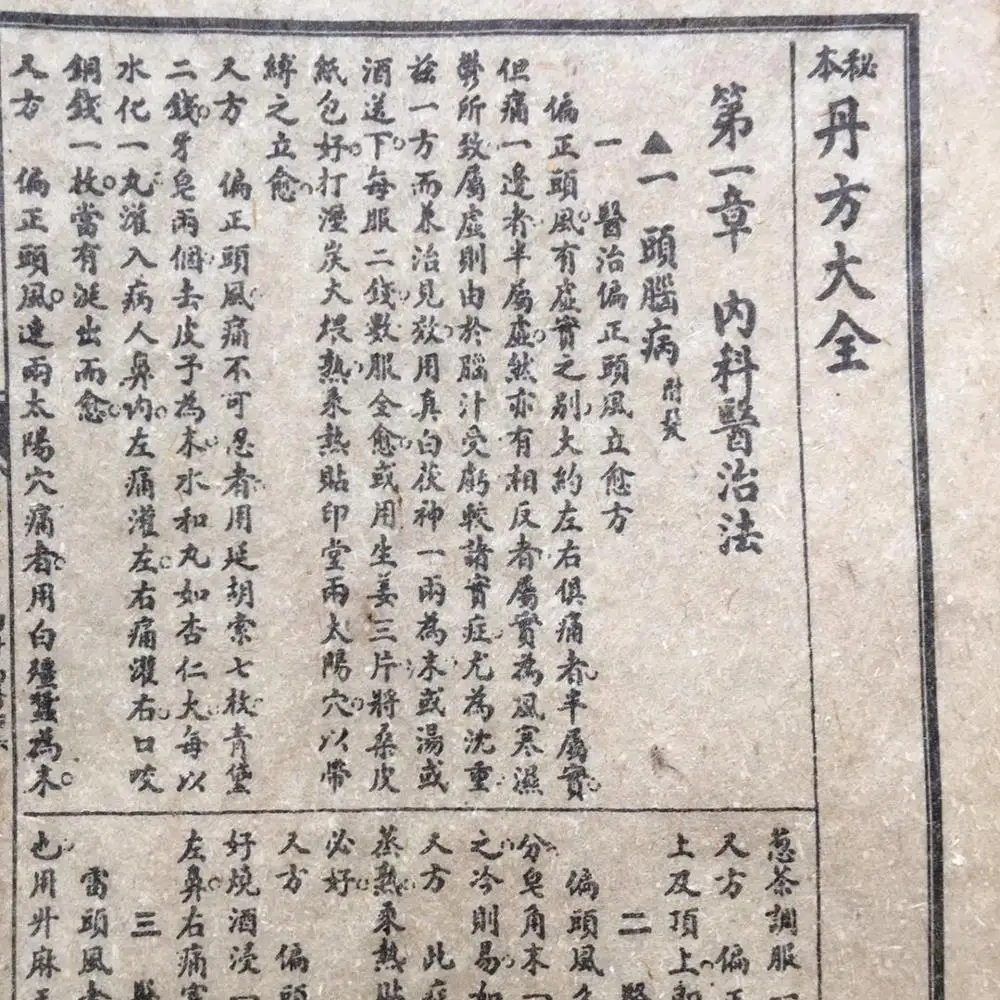 秘本丹方大全
第一章　內科醫治法
▲一　頭腦病 附髮
一　醫治偏正頭風立愈方
偏正頭風。有虛實之別。大約左右俱痛者。半屬實。
但痛一邊者。半屬虛。然亦有相反者。屬實為風寒濕
鬱所致。屬虛則由於腦汁受虧。較諸實症尤為沈重
茲一方而兼治見效。用真白茯神一兩為末。或湯或
酒送下。每服二錢。數服全愈。或用生姜三片。將桑皮
紙包好。打溼。炭火煨熱。乘熱貼印堂兩太陽穴。以帶
縛之立愈。
又方　偏正頭風。痛不可忍者。用延胡索七枚。青黛
二錢。牙皂兩個。去皮子為末。水和丸如杏仁大。每以
水化一丸。灌入病人鼻內。左痛灌左。右痛灌右。口咬
銅錢一枚。當有涎出而愈。
又方　偏正頭風。連兩太陽穴痛者。用白殭蠶為末。
葱茶調服一
又方　偏正
上及頂上即
二　醫
偏頭風久
分。皂角末一
之。冷則易。如
又方　此症
蒸熱。乘熱貼
必好。
又方　偏頭
好燒酒浸一
左鼻。右痛塞
三　醫
雷頭風者
也。用升麻五